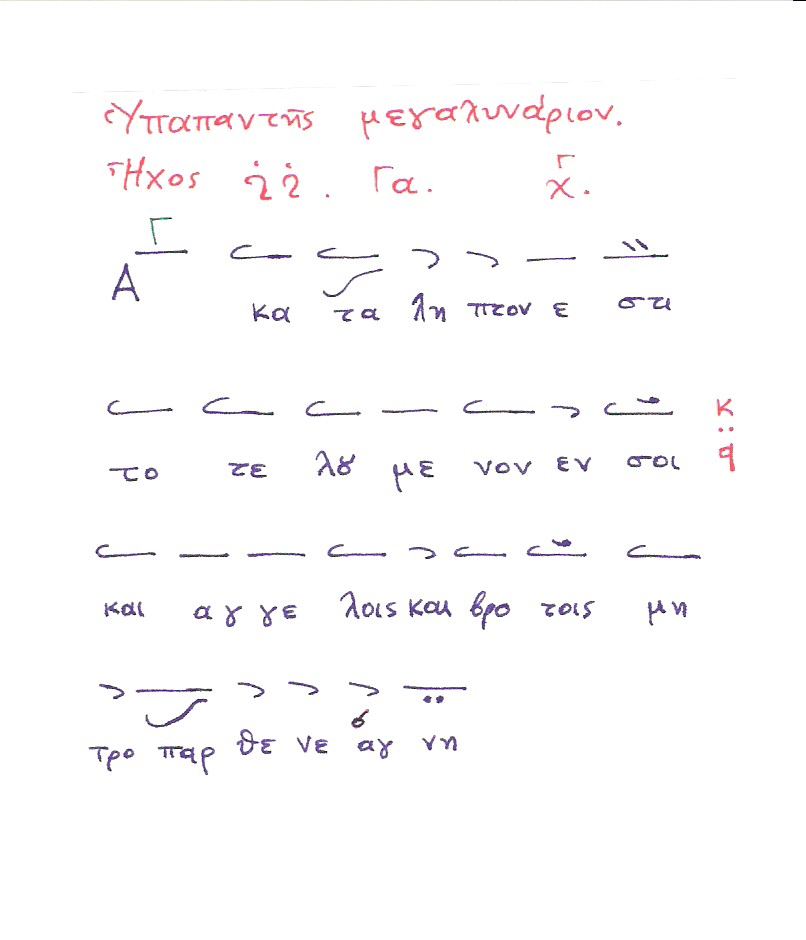 Ὑπαπαντῆς μεγαλυνάριον.
Ἦχος Γα. χ.
Α κα τα λη πτον ε στι
το τε λȣ με νον εν σοι
και αγ γε λοις και βρο τοις μη
τρο παρ θε νε αγ νη